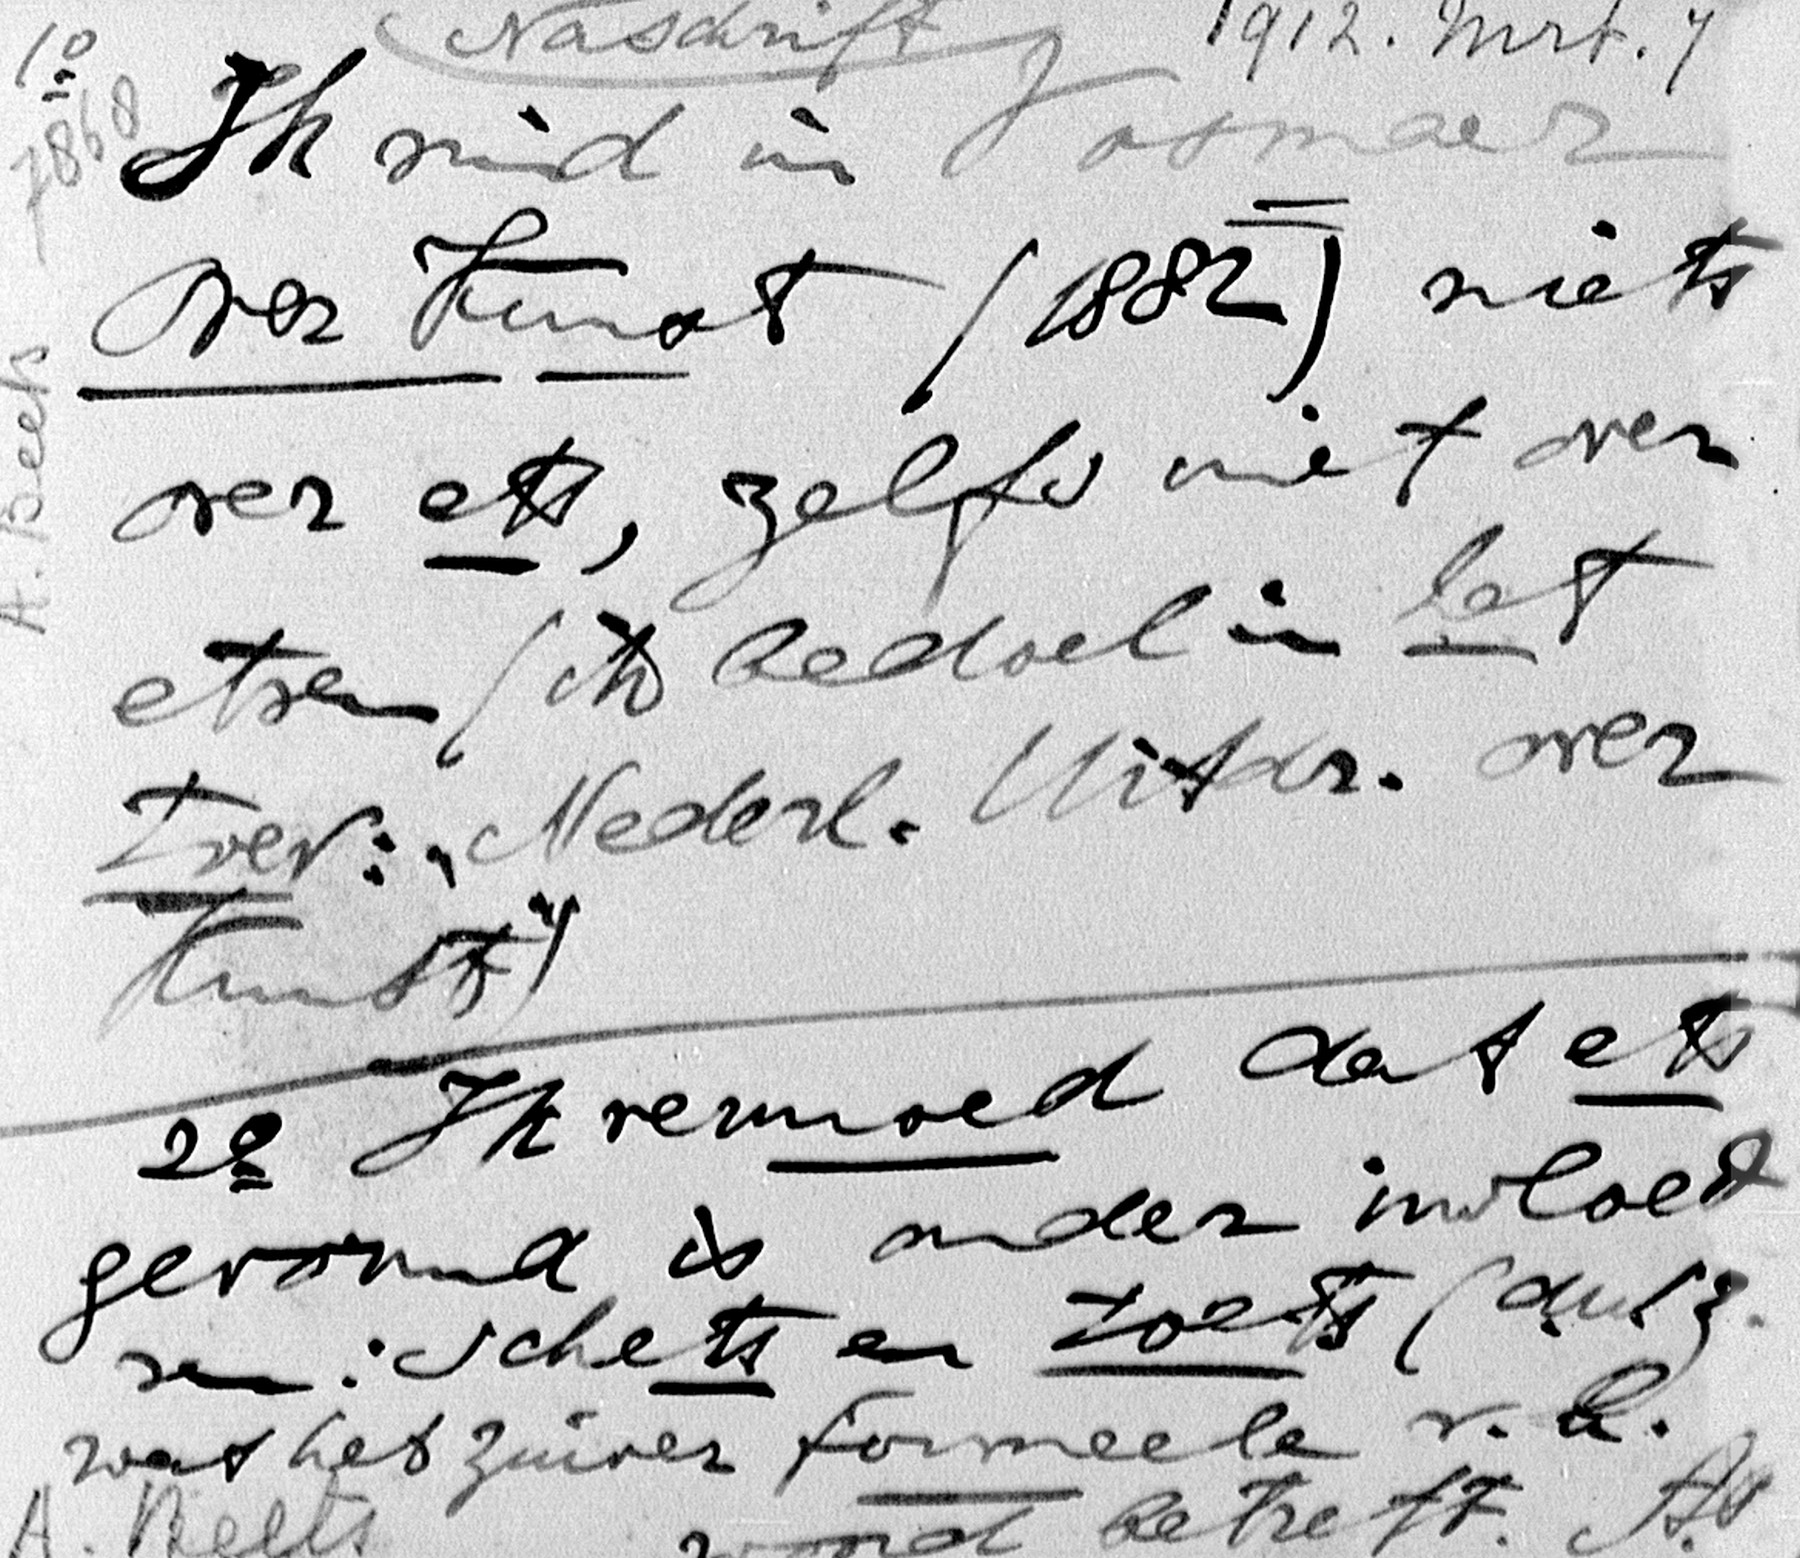 Naschrift 1912. Mrt. 7
1o
7868
Ik vind in Vosmaer
Over Kunst (1882) niets
over ets, zelfs niet over
etsen (ik bedoel in het
Over: „Nederl. Uitdr. over
Kunst")
2o Ik vermoed dat ets
gevormd is onder invloed
van: schets en toets (dus z.
wat het zuiver formeele v. h.
woord betreft.
A. Beets
A. Beets